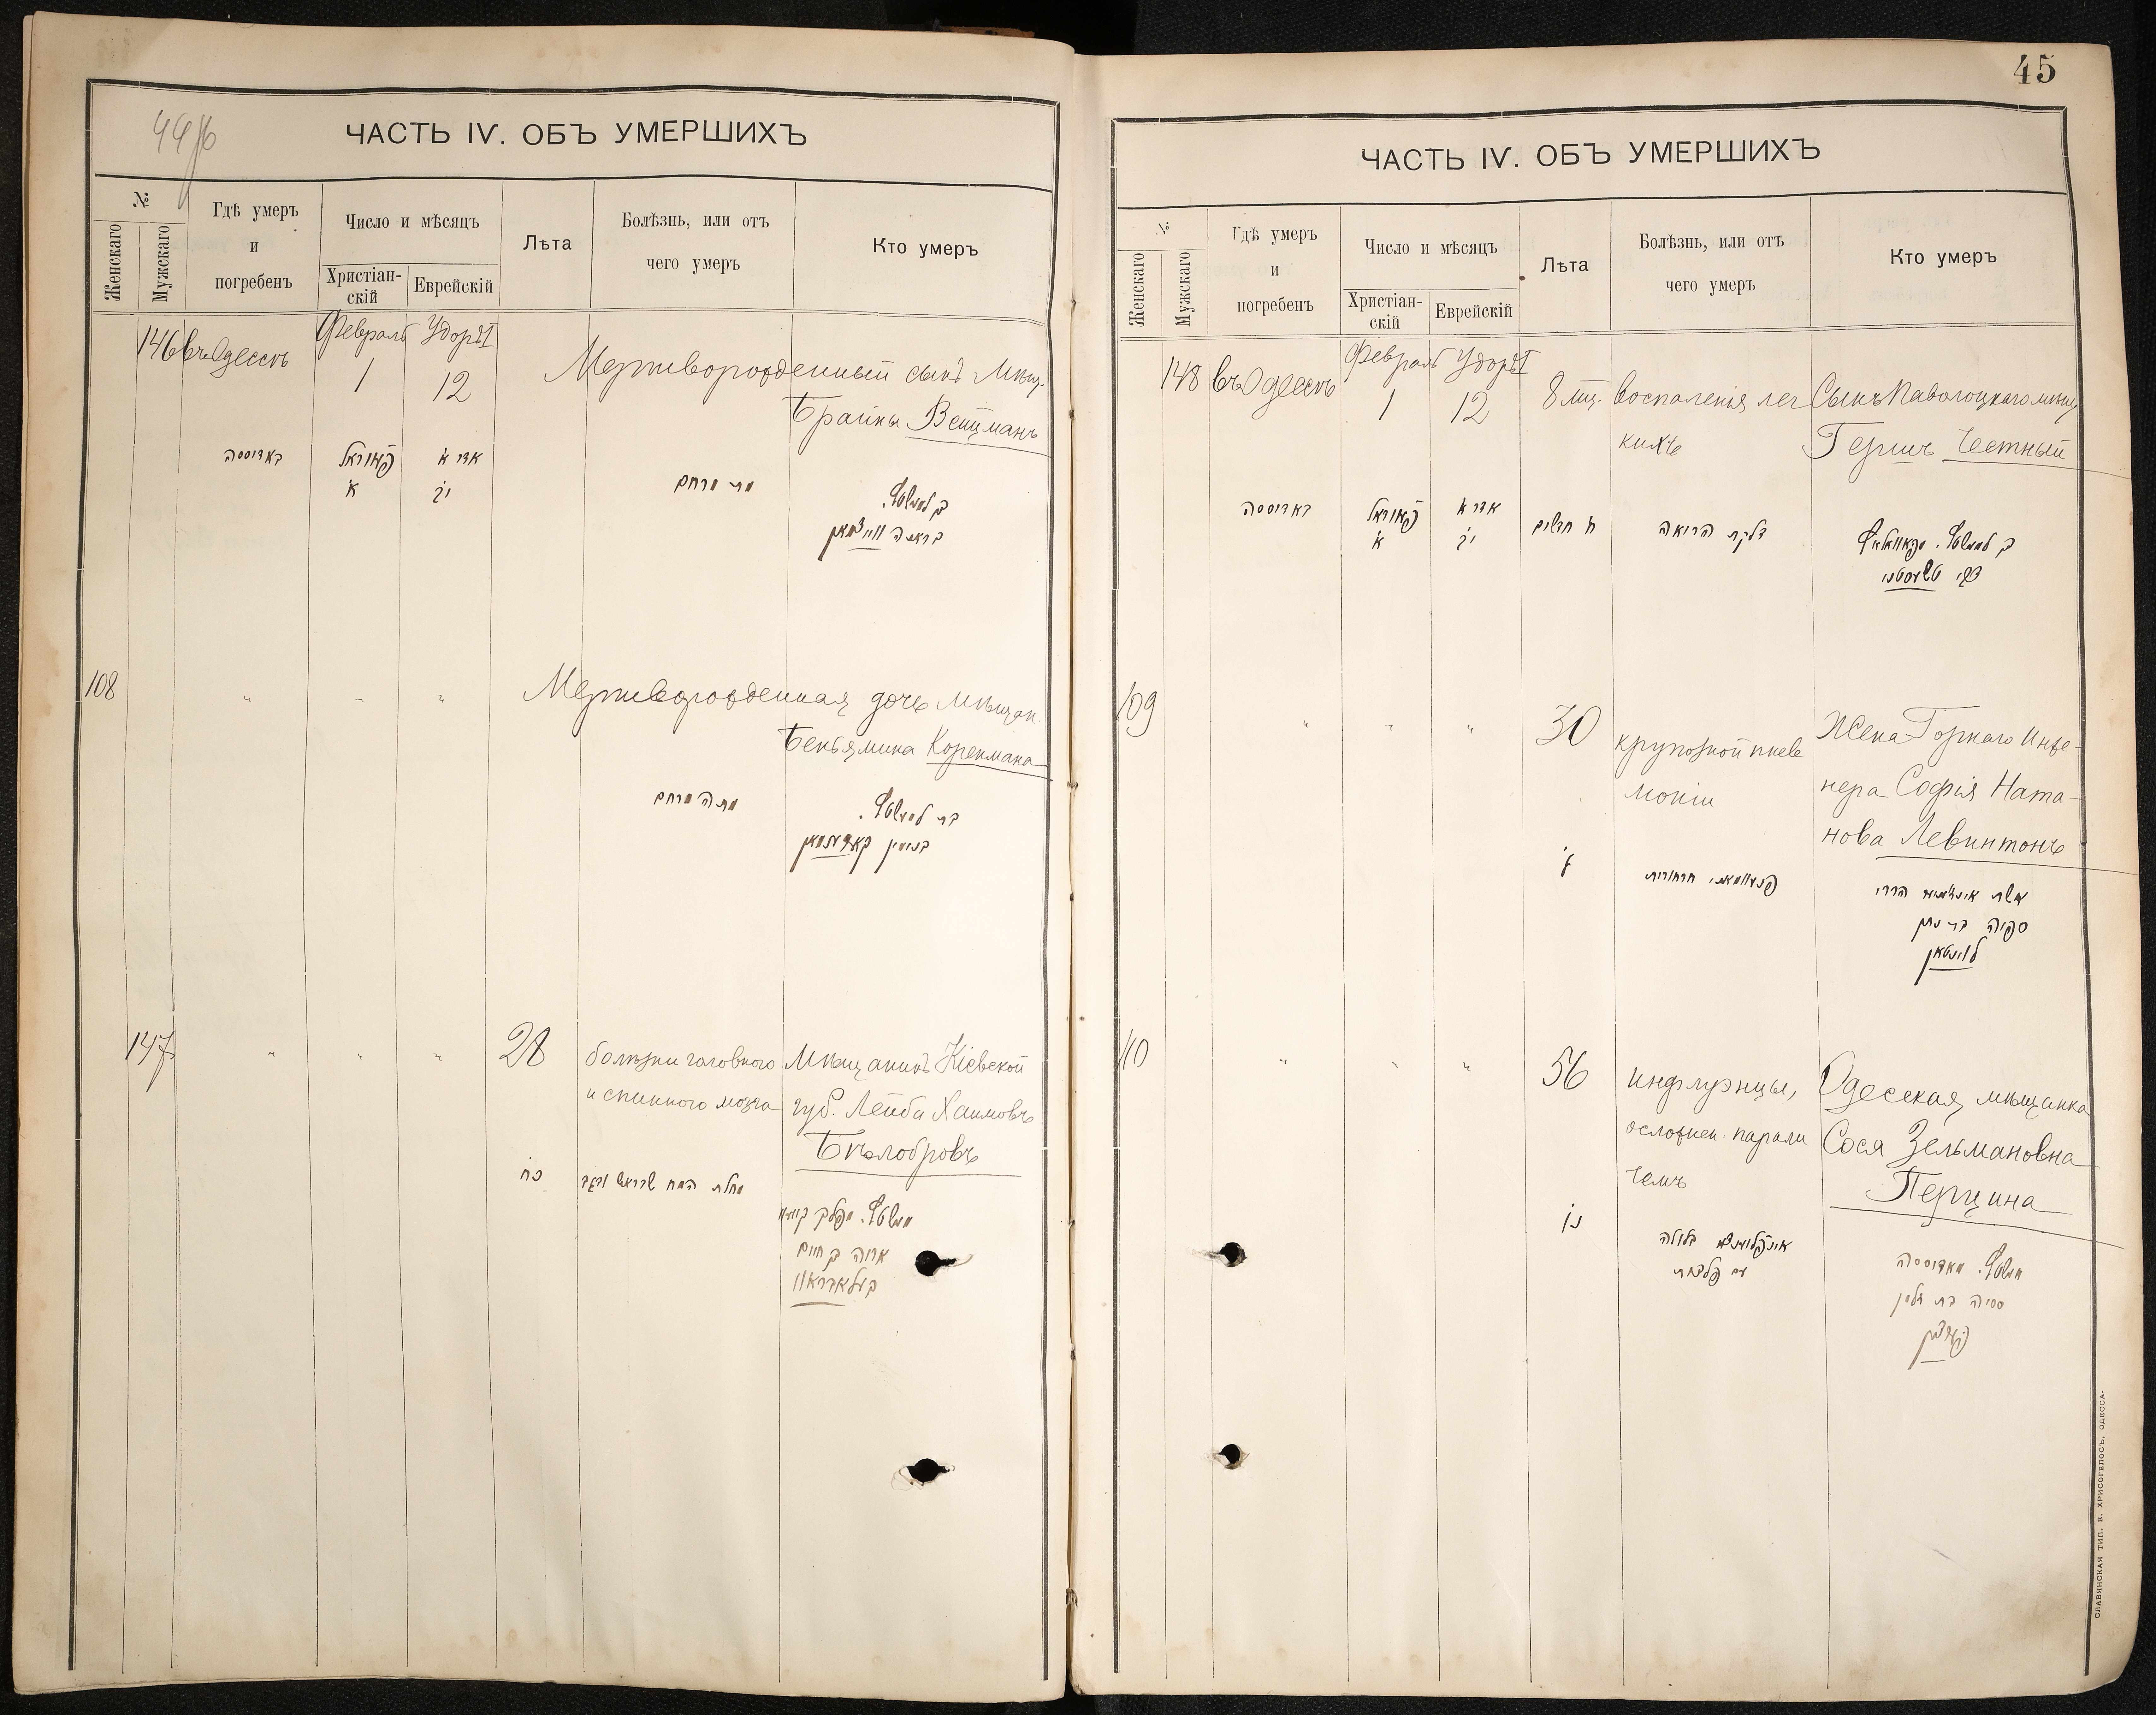 ЧАСТЬ IV. ОБЪ УМЕРШИХЪ
№
Женскаго
Мужскаго
Гдѣ умеръ
и
погребенъ
Число и мѣсяцъ
Христіан-
скій
Еврейскій
Лѣта
Болѣзнь, или отъ
чего умеръ
Кто умеръ
146 въ Одессѣ
Февраль Удоръ I
1 12
Мертворожденный сынъ Мѣщ.
Брайны Вейцманъ
באדיסס​ה
פֿאוראל
א׳
אדר א׳
י״ב
מת מרחם
בן למשטשׁ.
בראנה ווייצמאן
108 " " "
Мертворожденная дочь Мѣщан.
Беньямина Коренмана
מתה מרחם
בת למשטשׁ.
בנימין קארענמאן
147 " " " 28
болѣзни головного
и спинного мозга
Мѣщанинъ Кіевской
губ. Лейба Хаимовъ
Бѣлобровъ
כח
מחלת המח
אריה בן חיים
בעלאבראוו
45
ЧАСТЬ IV. ОБЪ УМЕРШИХЪ
№
Женскаго
Мужскаго
Гдѣ умеръ
и
погребенъ
Число и мѣсяцъ
Христіан-
скій
Еврейскій
Лѣта
Болѣзнь, или отъ
чего умеръ
Кто умеръ
148 въ Одессѣ
Февраль Удоръ I
1 12
8 мѣц.
воспаленія лег
кихъ
Сынъ Паволоцкаго мѣщ
Гершъ Честный
באדיססה
פֿאוראל
א׳
אדר א׳
י״ב
ח׳ חדשים
דלקת הריאה
צבי טשעסטני
109 " " " 30
крупозной пнев
моніи
Жена Горнаго Инже-
нера Софія Ната-
нова Левинтонъ
ל׳
אשת אינזשיניר הררי
ספיה בת נתן
לוינטאן
110 " " " 56
инфлуэнцы,
осложнен. парали
чемъ
Одесская мѣщанка
Сося Зельмановна
Перцина
נו
אינפֿלוענצא כלולה
עם
מאדיססה
סוסיה בת זלמן
פערצין
СЛАВЯНСКАЯ ТИП. Е. ХРИСОГЕЛОСЪ, ОДЕССА.